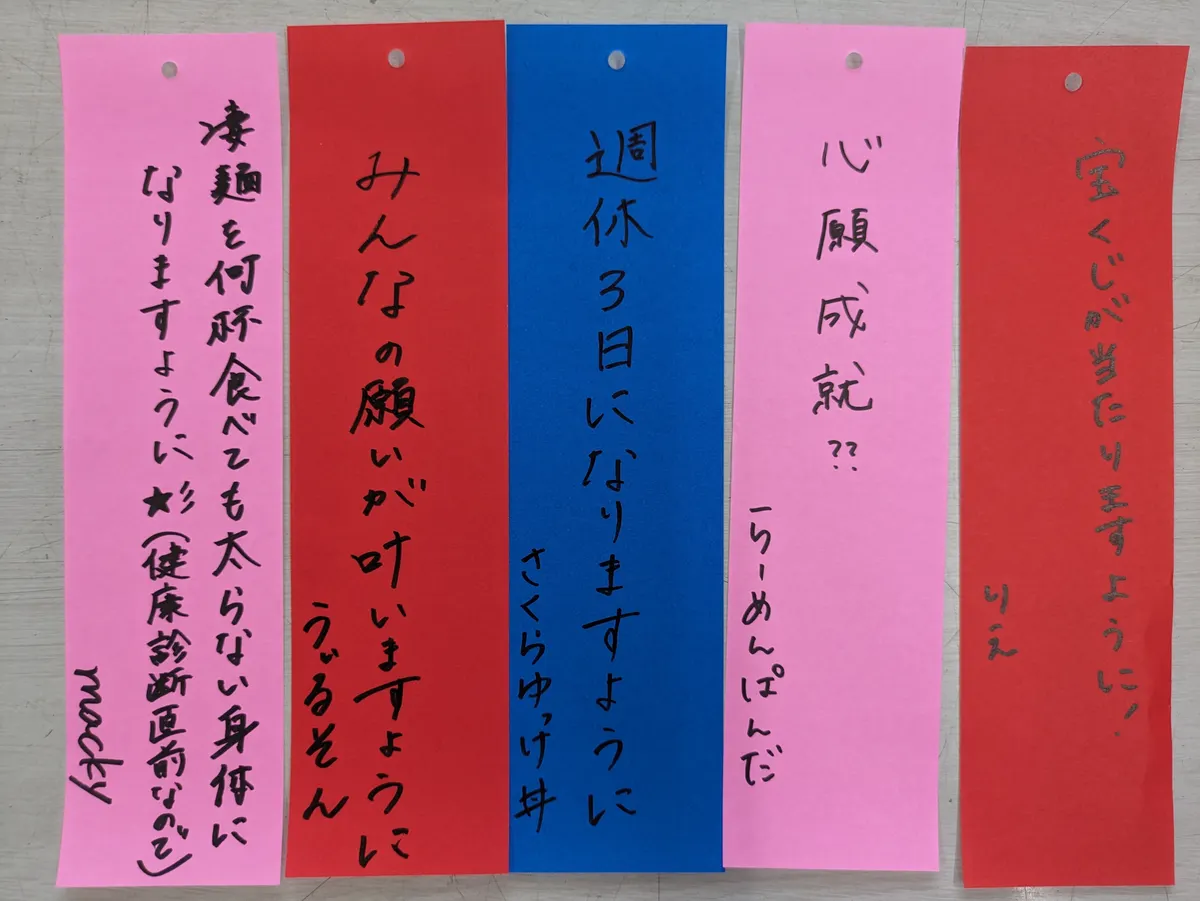 宝くじが当たりますように!
りえ
心願成就??
らーめんぱんだ
週休3日になりますように
さくらゆっけ丼
みんなの願いが叶いますように
うぃるそん
凄麺を何杯食べても太らない身体に
なりますように★彡(健康診断直前なので)
macky